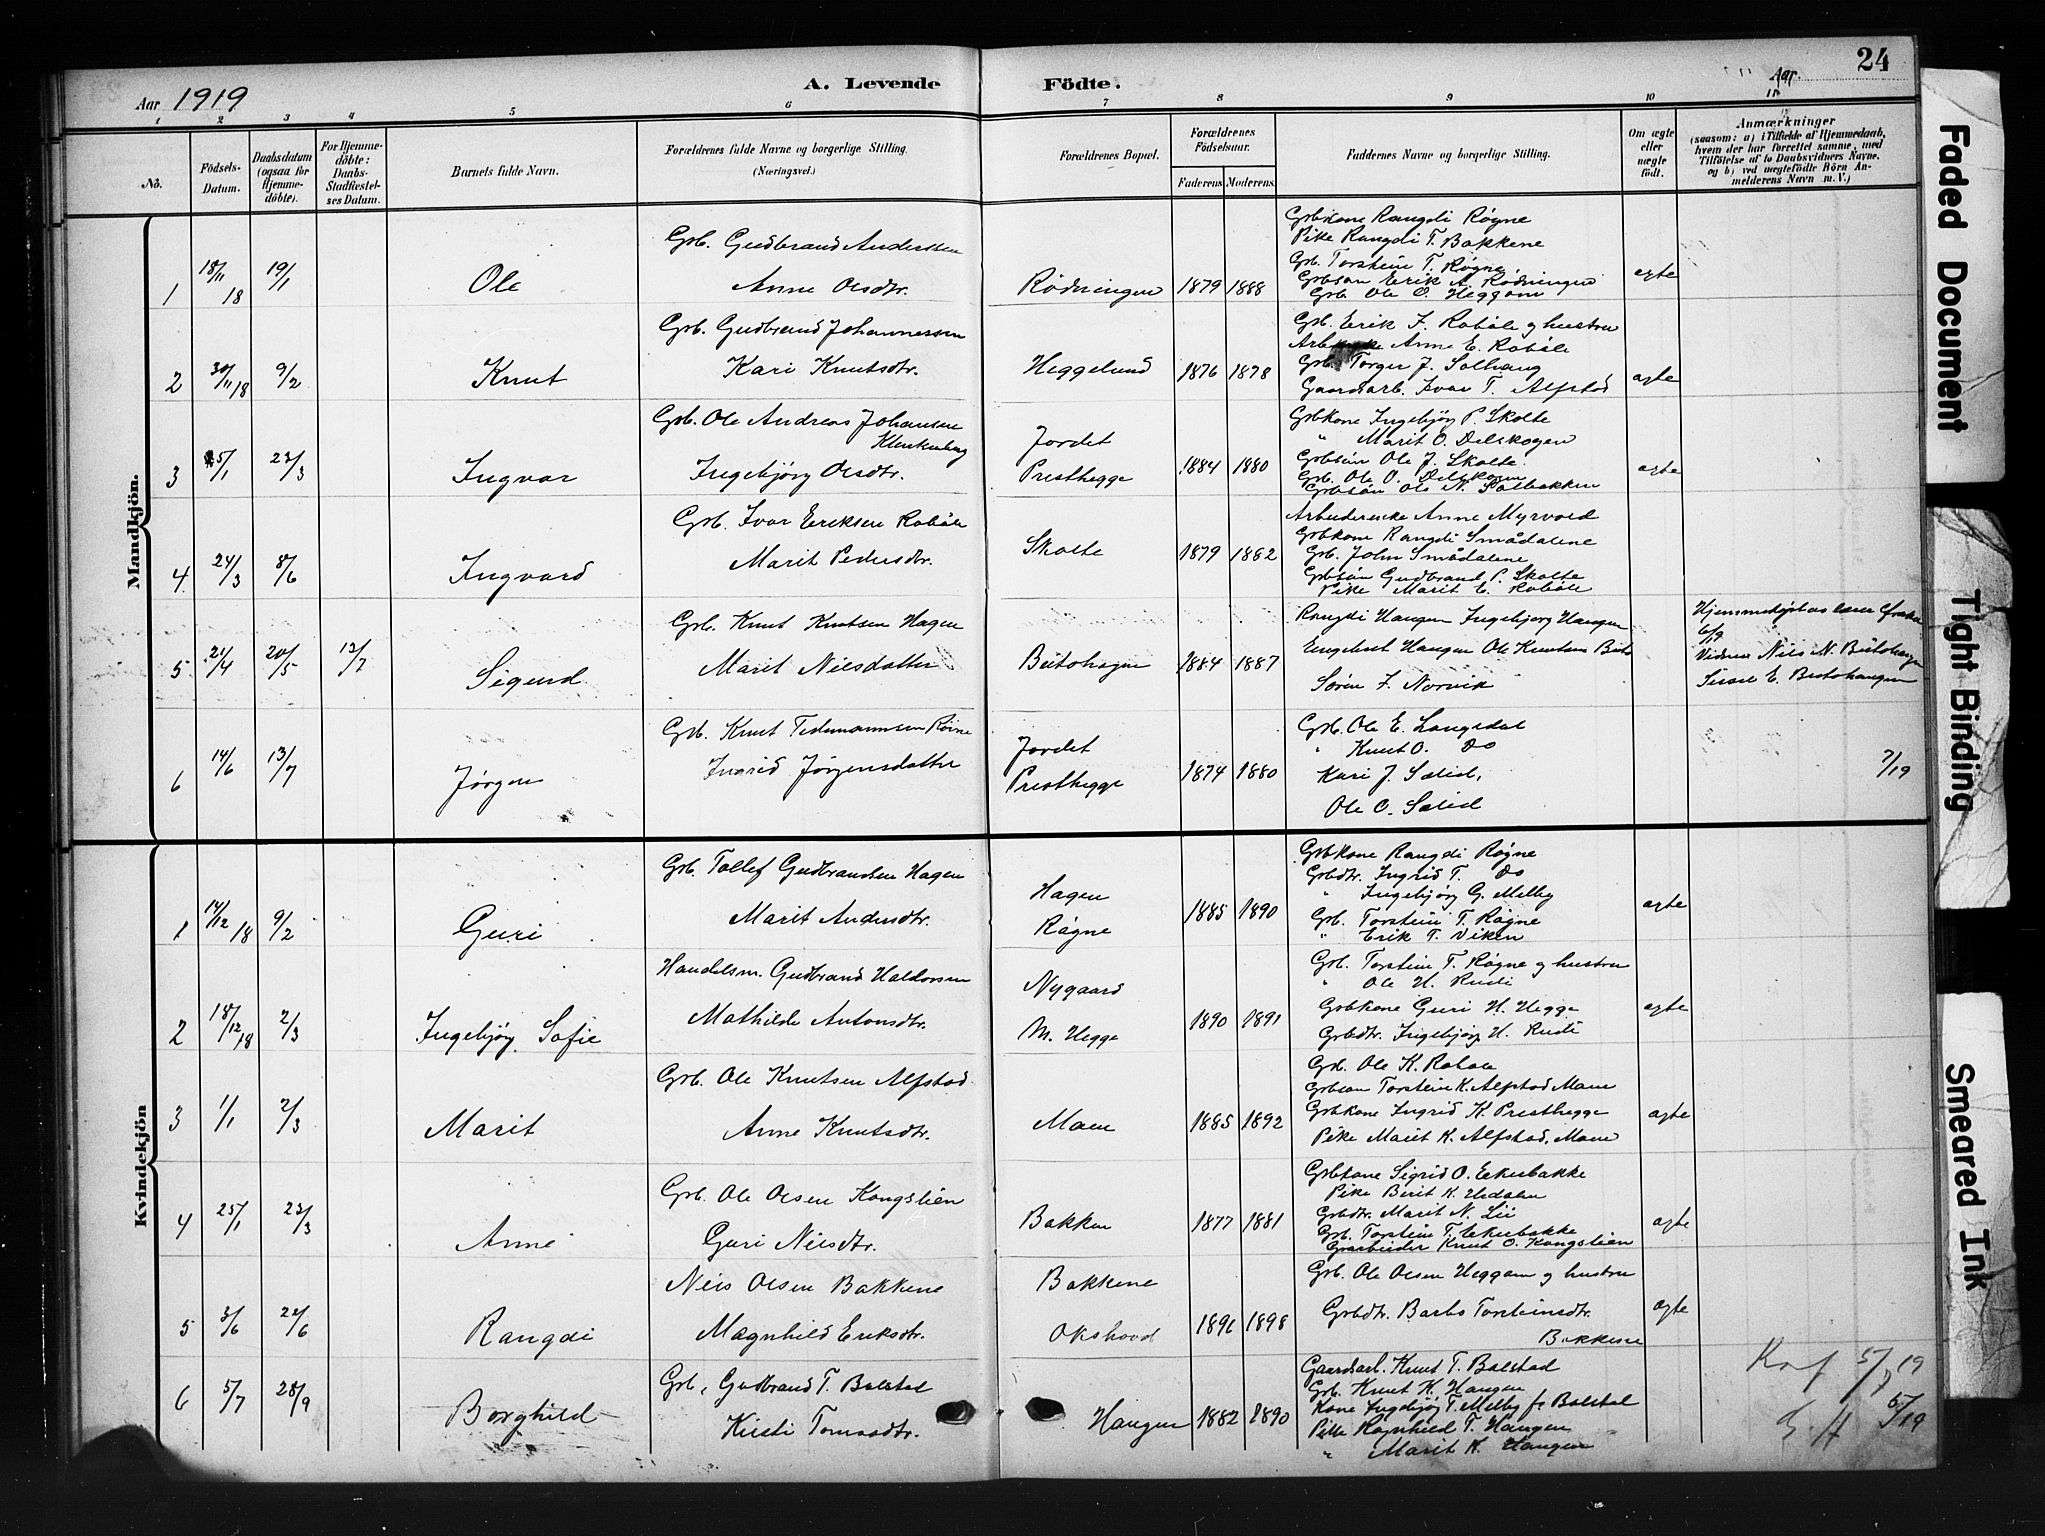 24
Aar 1919
A. Levende Födte.
Aar.
1 2 3 4 5 6 7 8 9 10 11
No.
Födsels-Datum.
Daabsdatum (ogsaa for Hjemme-döbte).
For Hjemme-döbte: Daabs-Stadfæstel-ses Datum.
Barnets fulde Navn.
Forældrenes fulde Navne og borgerlige Stilling.
(Næringsvei.)
Forældrenes Bopæl.
Forældrenes Födselsaar.
Faderens. Moderens.
Faddernes Navne og borgerlige Stilling.
Om ægte eller uægte födt.
Anmærkninger
(saasom: a) i Tilfælde af Hjemmedaab, hvem der har forrettet samme, med Tilföielse af to Daabsvidners Navne, og b) ved uægtefödte Börn An-melderens Navn m. V.)
Mandkjön.
1 18/11 18 19/1 Ole
Grb. Gudbrand Anderssen
Anne Olsdtr.
Rødningen 1879 1888
Grbkone Rangdi Røgne
Pike Rangdi T. Bakkene
Grb. Torstein T. Røgne
Grbsøn Erik A. Rødningen
Grb. Ole O. Heggom
ægte
2 30/11 18 9/2 Knut
Grb. Gudbrand Johannessen
Kari Knutsdtr.
Heggelund 1876 1878
Grb. Erik J. Robøle og hustru
Anne E. Robøle
Grb. Torger J. Solhaug
Gaardarb. Ivar T. Alfstad
ægte
3 5/1 23/3 Ingvar
Grb. Ole Andreas Johansen
Klenkenberg
Ingebjørg Olsdtr.
Jordet
Presthegge 1884 1880
Grbkone Ingebjørg P. Skolte
" Marit O. Dalskogen
Grbsøn Ole J. Skolte.
Grb. Ole O. Dalskogen
Grbsøn Ole N. Solbakken
ægte
4. 24/3 8/6 Ingvard
Grb. Ivar Eriksen Robøle
Marit Pedersdtr.
Skolte 1879 1882
Arbeiderske Anne Myrvold
Grbkone Rangdi Smådalene
Grb. John Smådalene
Grbsøn Gudbrand P. Skolte
Pike Marit E. Robøle
5. 21/4 20/5 13/7 Sigurd
Grb. Knut Knutsen Hagen
Marit Nilsdatter
Beitohagen 1884 1887
Rangdi Haugen Ingebjørg Haugen
Engebret Haugen Ole Knutsen Beito
Søren J. Norvik
Hjemmedøpt av lærer
Vidner Nils N. Beitohaugen
Sissel E. Beitohaugen
6 14/6 13/7 Jørgen
Grb. Knut Tidemannsen Røine
Ingrid Jørgensdatter
Jordet
Presthegge 1874 1880
Grb. Ole E. Langedal
" Knut O. Do
Kari J. Sælid,
Ole O. Sælid
7/19
Kvindekjön
1 14/12 18 9/2 Guri
Grb. Tollef Gudbrandsen Hagen
Marit Andersdtr.
Hagen
Røgne 1885 1890
Grbkone Rangdi Røgne
Grbdtr. Ingrid T. Do
" Ingebjørg G. Melby
Grb. Torstein T. Røgne
" Erik T. Viken
ægte
2 18/12 18 2/3 Ingebjørg Sofie
Handelsm. Gudbrand Haldorsen
Mathilde Antonsdtr.
Nygaard
M. Hegge 1890 1891
Grb. Torstein T. Røgne og hustru
" Ole H. Rudi
Grbkone Guri H. Hegge
Grbdtr. Ingebjørg H. Rudi
ægte
3 1/1 2/3 Marit
Grb. Ole Knutsen Alfstad
Anne Knutsdtr.
Moen 1885 1892
Grb. Ole K. Roboe
Grbsøn Torstein K. Alfstad, Moen
Grbkone Ingrid K. Presthegge
Pike Marit K. Alfstad, Moen
ægte
4 25/1 23/3 Anne
Grb. Ole Olsen Kongslien
Guri Nilsdtr.
Bakken 1877 1881
Grbkone Sigrid O. Ekerbakke
Pike Berit K. Urdalen
Grbdtr. Marit N. Lii
Grb. Torstein T. Ekerbakke
Grarbeider Knut O. Kongslien
ægte
5 3/6 22/6 Rangdi
Nils Olsen Bakkene
Magnhild Eriksdtr.
Bakkene
Okshovd 1896 1898
Grb. Ole Olsen Heggom og hustru
Grbdtr. Barbo Torsteinsdtr.
Bakkene
ægte
6 5/7 28/9 Borghild
Grb. Gudbrand T. Bolstad
Kirsti Tomasdtr.
Haugen 1882 1890
Gaardarb. Knut T. Bolstad
Grb. Knut K. Haugen
Kone Ingebjørg T. Melby f. Bolstad
Pike Ragnhild T. Haugen
" Marit K. Haugen
Faded Document
Tight Binding
Smeared Ink